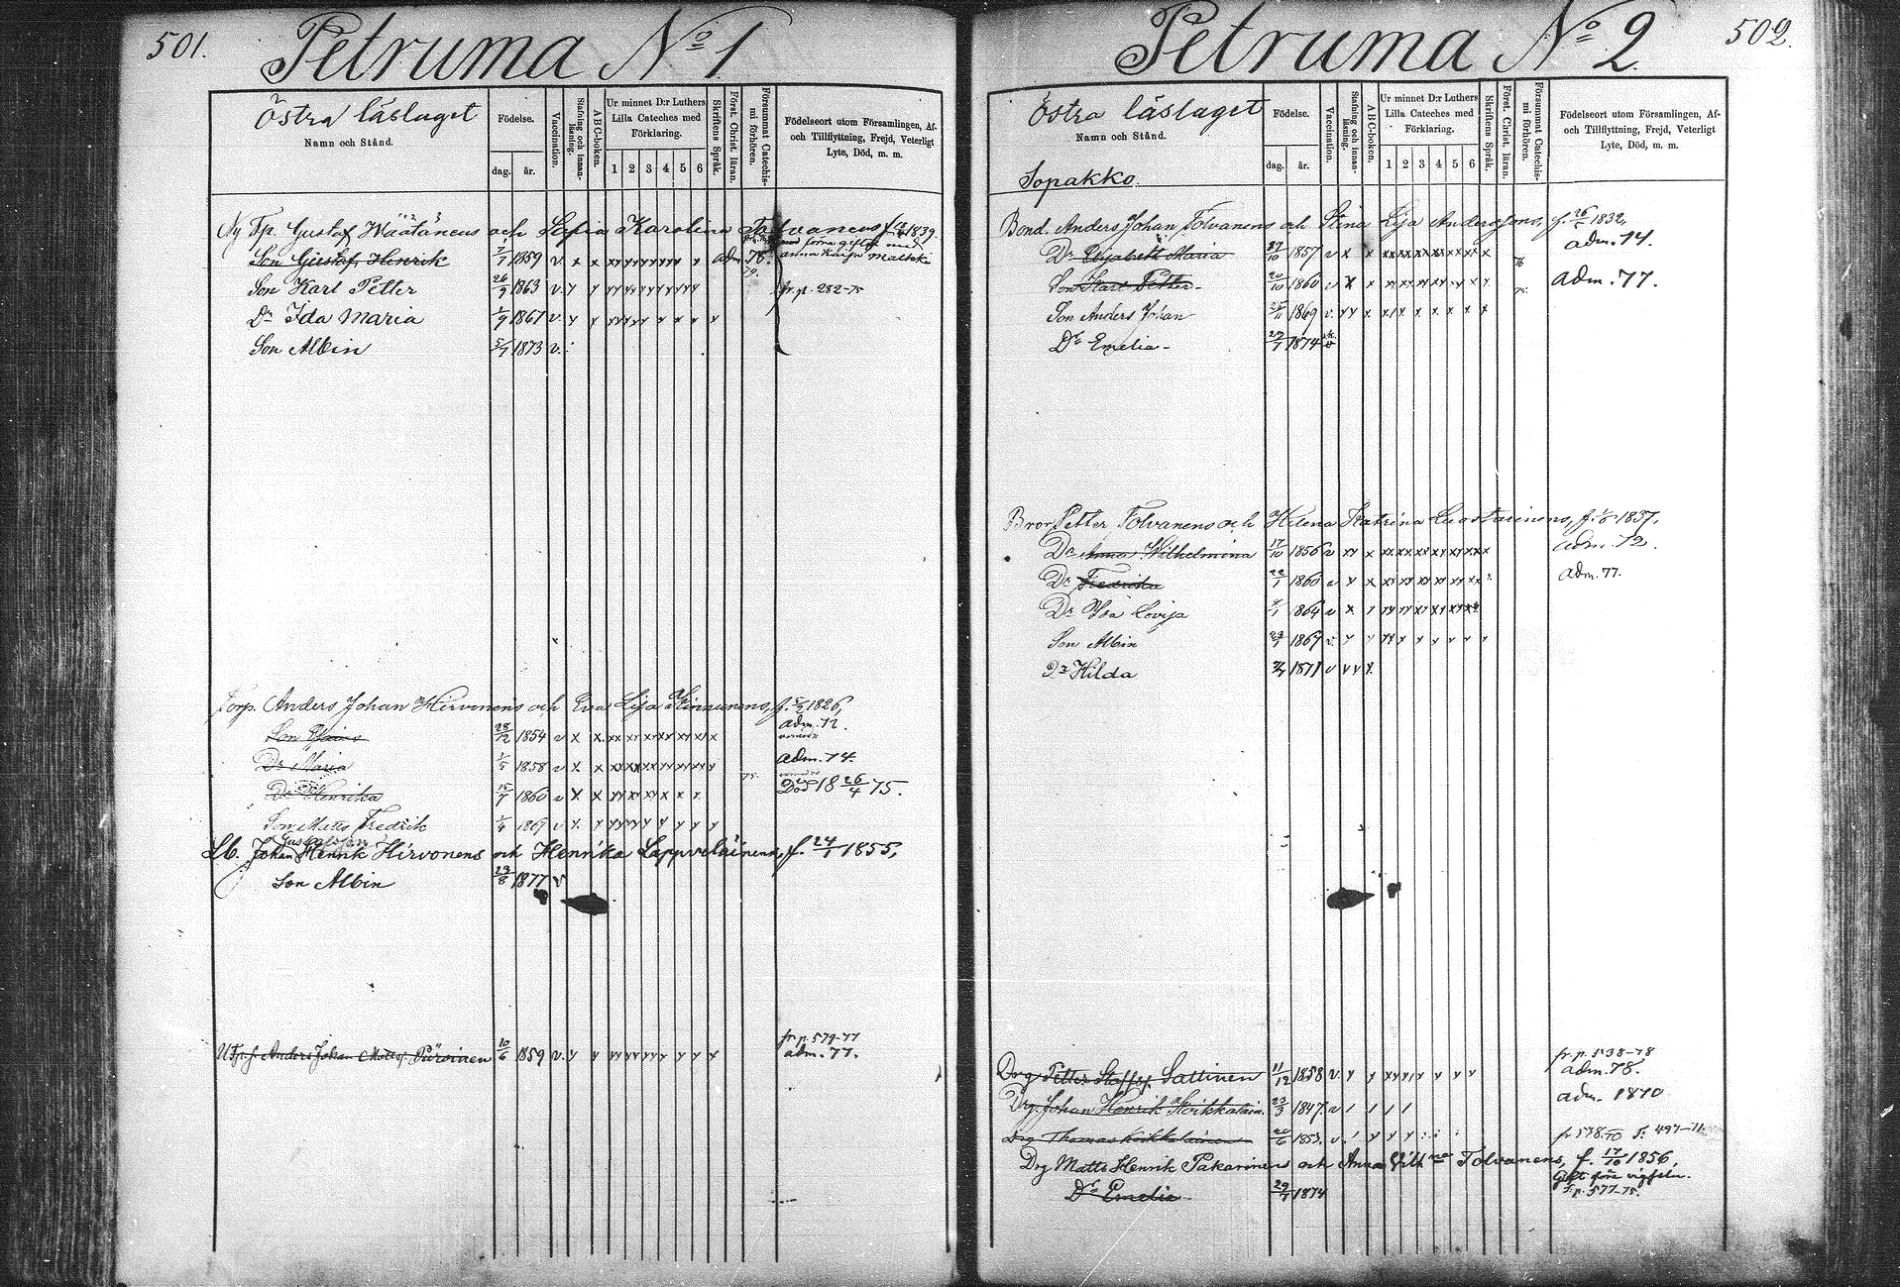 501.
Petruma No 1
Östra läslaget
Namn och Stånd.
Födelse.
dag. år.
Vaccination.
Stafning och innan-läsning.
ABC-boken.
Ur minnet D:r Luthers Lilla Cateches med Förklaring.
1 2 3 4 5 6
Skriftens Språk.
Först. Christ. läran.
Försummat Catechis-mi förhören.
Födelseort utom Församlingen, Af- och Tillflyttning, Frejd, Veterligt Lyte, Död, m. m.
Ny Tp. Gustaf Wäätänens och Sofia Karolina Tolvanens f. 1839.
Son Gustaf Henrik 1859 v adm. 78.
79.
Son Karl Petter 26/9 1863 v. fr. p. 282-75
Dr Ida Maria 1/9 1867 v.
Son Albin 5/7 1873 v.
Torp. Anders Johan Hirvonens och Eva Lisa Kinnunens, f. 1826,
Son 28/12 1854 v adm. 72.
Dr Maria 1/5 1858 v adm. 74.
Dr Henrika 1860 v 75. Död 18 26/4 75.
Son Matts Fredrik 1/4 1869 v
Lb. Johan Henrik Hirvonens och Henrika Lappveläinens, f. 24/1 1855,
Son Albin 29/8 1877 v
fr. p. 579-77
Anders Johan Mattsf. Päivinen 10/6 1859 v. adm. 77.
502.
Petruma No 2.
Östra läslaget
Namn och Stånd.
Födelse.
dag. år.
Vaccination.
Stafning och innan-läsning.
ABC-boken.
Ur minnet D:r Luthers Lilla Cateches med Förklaring.
1 2 3 4 5 6
Skriftens Språk.
Först. Christ. läran.
Försummat Catechis-mi förhören.
Födelseort utom Församlingen, Af- och Tillflyttning, Frejd, Veterligt Lyte, Död, m. m.
Sopakko.
Bond. Anders Johan Tolvanens och Stina Lisa Anderssons, f. 1832,
Dr Elisabeth Maria 27/10 1857 v adm. 74.
Son Karl Petter 20/10 1860 v adm. 77.
Son Anders Johan 25/11 1869 v.
Dr Emelia 29/7 1874 v
Bror Petter Tolvanens och Helena Katrina Luostarinens, f. 1837,
Dr Anna Wilhelmina 17/10 1856 v adm. 72.
Dr Fredrika 22/1 1860 v adm. 77.
Dr Ida Lovisa 1864 v
Son Albin 1867 v.
Dr Hilda 1871 v
fr. p. 538-78
Drg Petter Staffsf. Sattinen 11/12 1858 v. adm. 78.
Drg. Johan Henrik Koikkalain. 23/3 1847 v adm. 1870
Drg Thomas Koikkalainen 20/6 1853. v 497-71.
Drg Matts Henrik Pakarinens och Anna Vilh:na Tolvanens, f. 17/10 1856,
Dr Emelia 29/7 1874 T. p. 577-75.